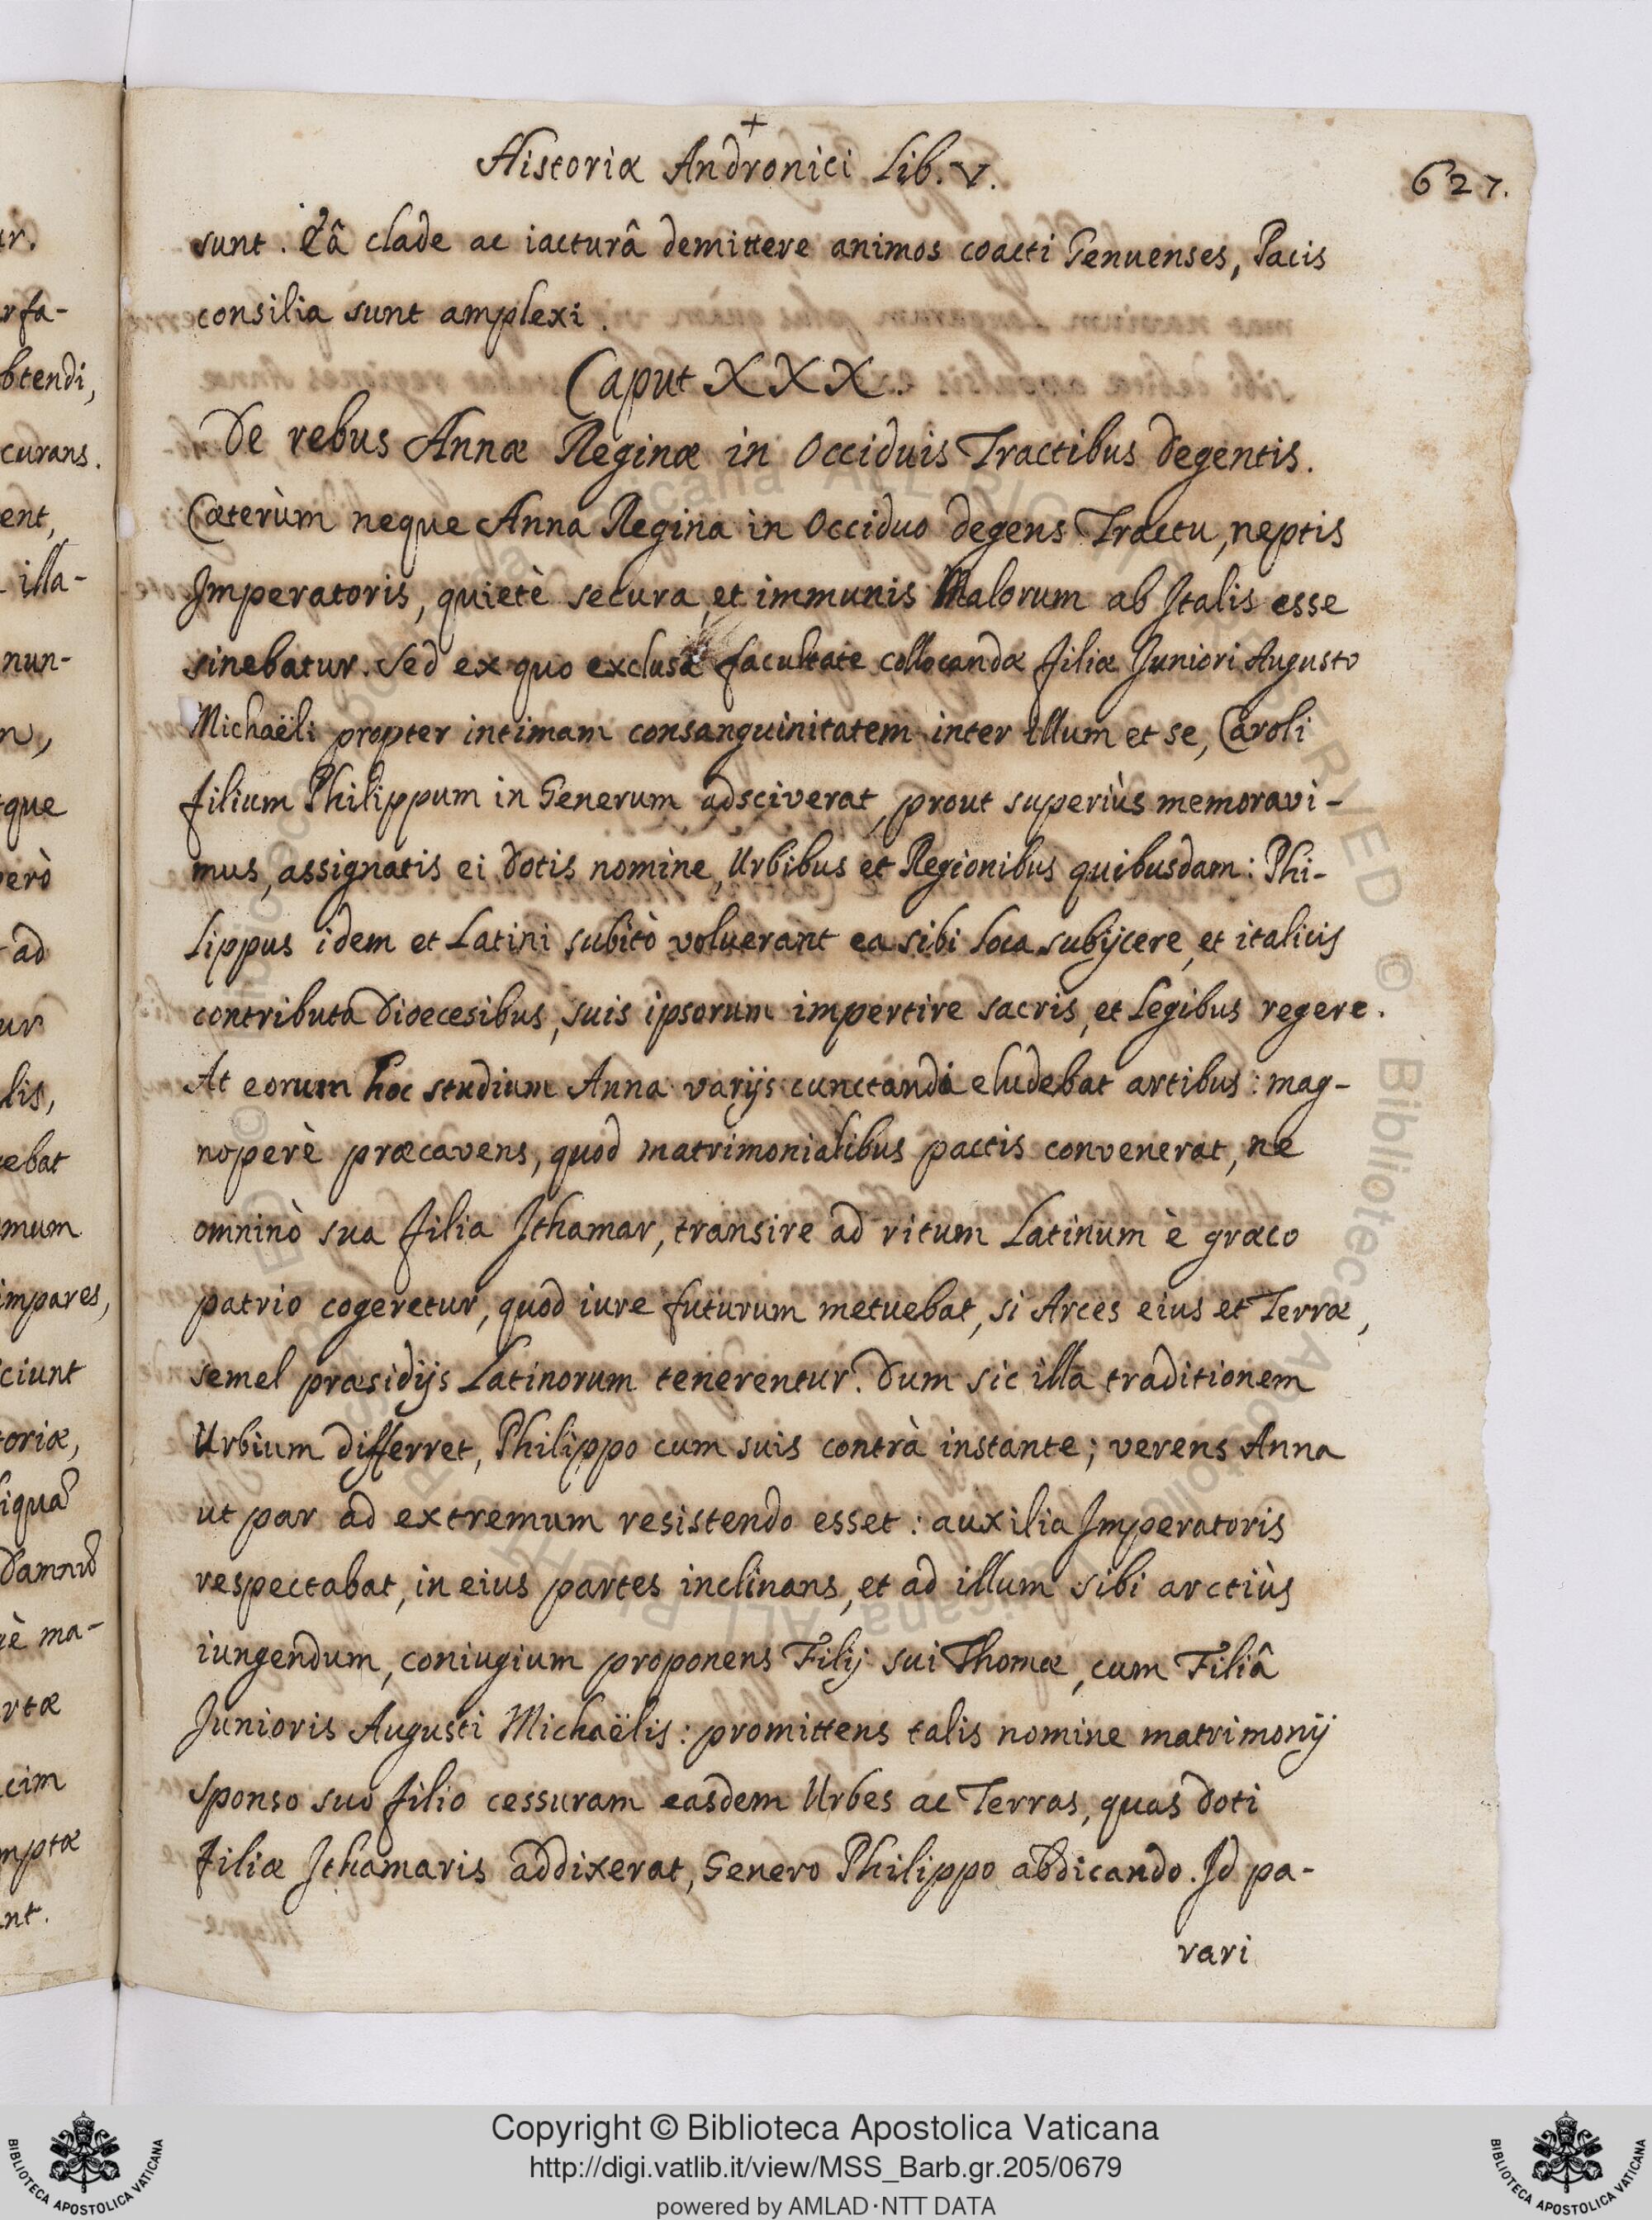 +
Historiæ Andronici Lib. V.
627.
sunt. Eâ clade ac iacturâ demittere animos coacti Genuenses, Pacis
consilia sunt amplexi.
Caput XXX.
De rebus Annæ Reginæ in Occiduis Tractibus degentis.
Cæterùm neque Anna Regina in Occiduo degens Tractu, neptis
Imperatoris, quietè secura, et immunis Malorum ab Italis esse
sinebatur. Sed ex quo exclusa facultate collocandæ filiæ Juniori Augusto
Michaëli propter intimam consanguinitatem inter illum et se, Caroli
filium Philippum in Generum adsciverat, prout superiùs memoravi-
mus, assignatis ei dotis nomine, Urbibus et Regionibus quibusdam: Phi-
lippus idem et Latini subitò voluerant ea sibi loca subijcere, et italicis
contributa Dioecesibus, suis ipsorum impertire sacris, et legibus regere.
At eorum hoc studium Anna varijs cunctandi eludebat artibus: mag-
noperè præcavens, quod matrimonialibus pactis convenerat, ne
omninò sua filia Ithamar, transire ad ritum Latinum è græco
patrio cogeretur, quod iure futurum metuebat, si Arces eius et Terræ,
semel præsidijs Latinorum tenerentur. Dum sic illa traditionem
Urbium differret, Philippo cum suis contrà instante; verens Anna
ut par ad extremum resistendo esset: auxilia Imperatoris
respectabat, in eius partes inclinans, et ad illum sibi arctiùs
iungendum, coniugium proponens Filij sui Thomæ, cum Filiâ
Junioris Augusti Michaëlis: promittens talis nomine matrimonij
sponso suo filio cessuram easdem Urbes ac Terras, quas doti
filiæ Ithamaris addixerat, Genero Philippo abdicando. Id pa-
rari
ur.
rfa-
btendi,
curans.
ent,
illa-
nun-
n,
que
erò
ad
ur
lis,
ebat
mum
impares,
ciunt
toriæ,
è ma-
rtæ
cim
mptæ
nt.
Copyright © Biblioteca Apostolica Vaticana
http://digi.vatlib.it/view/MSS_Barb.gr.205/0679
powered by AMLAD·NTT DATA
BIBLIOTECA APOSTOLICA VATICANA
BIBLIOTECA APOSTOLICA VATICANA